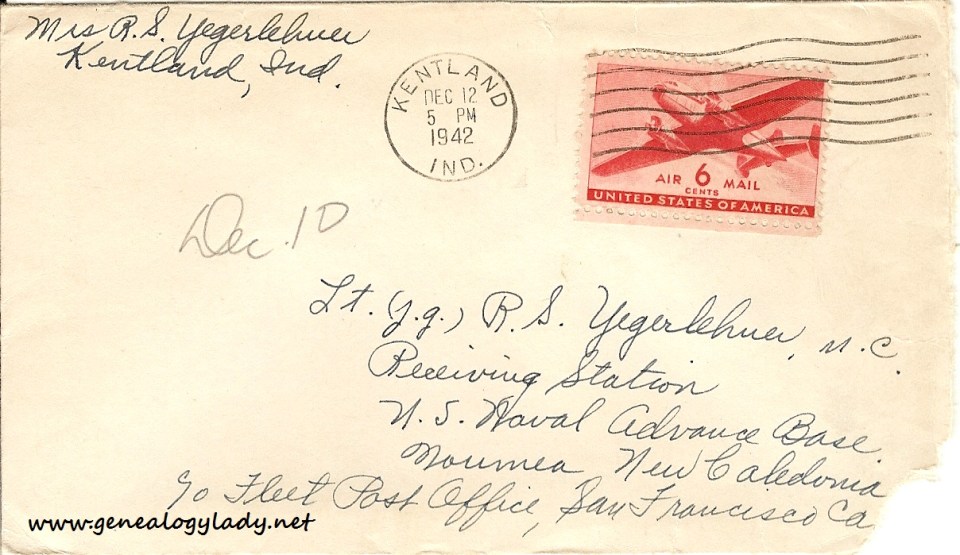 Mrs R. S. Yegerlehner
Kentland, Ind.
KENTLAND
DEC 12
5 PM
1942
IND.
AIR 6 MAIL
CENTS
UNITED STATES OF AMERICA
Dec. 10
Lt. (j.g.) R. S. Yegerlehner, M.C.
Receiving Station
U. S. Naval Advance Base
Noumea, New Caledonia
c/o Fleet Post Office, San Francisco Ca
www.genealogylady.net